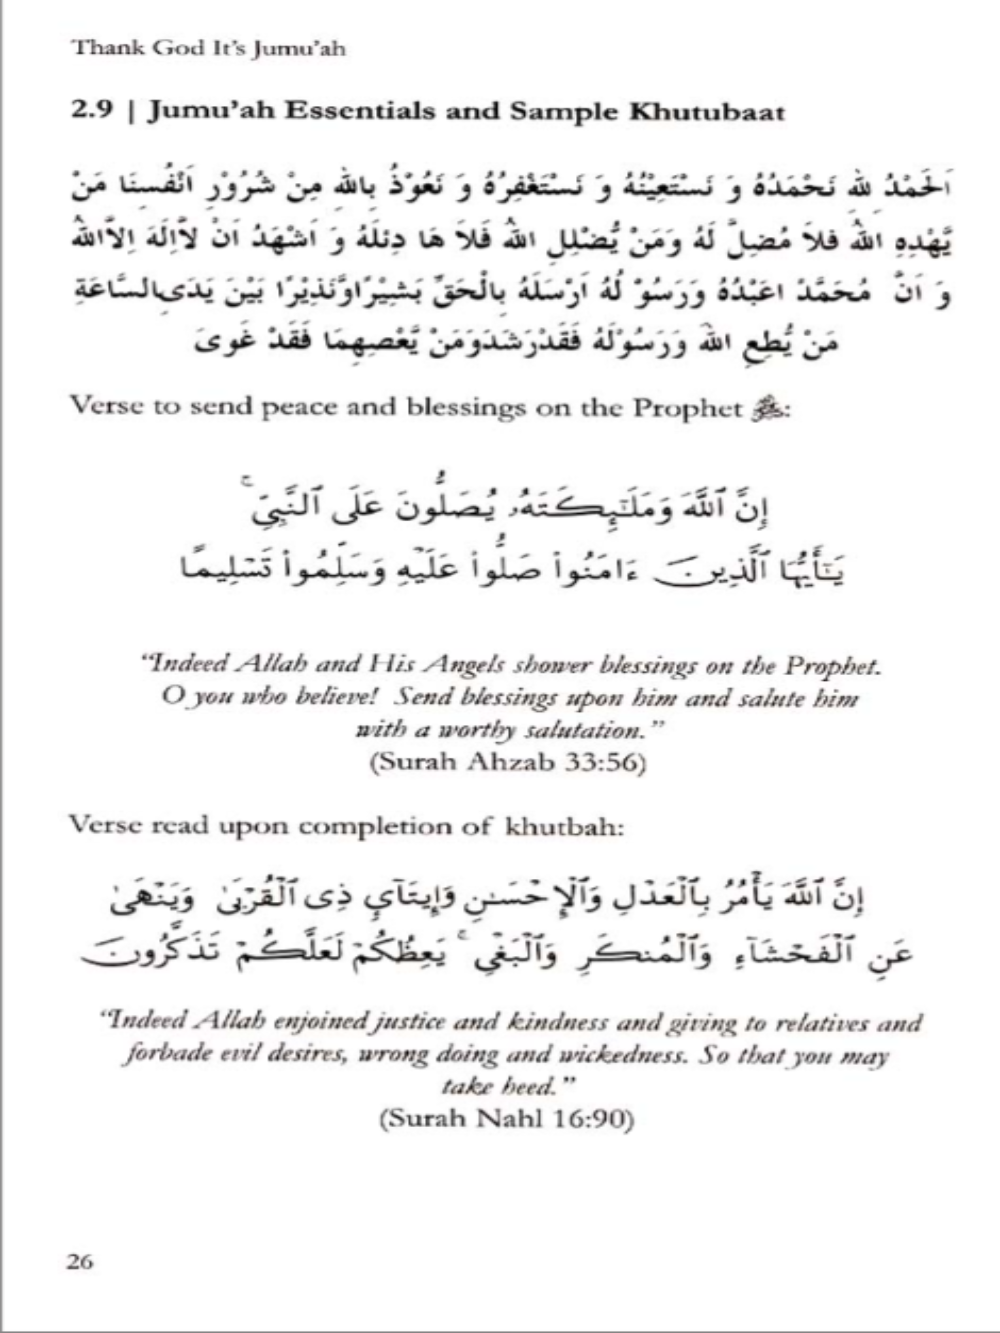 Thank God It's Jumu'ah
2.9 | Jumu'ah Essentials and Sample Khutubaat
اَلْحَمْدُ لله نَحْمَدُهُ وَ نَسْتَعِيْنُهُ وَ نَسْتَغْفِرُهُ وَ نَعُوْذُ بِالله مِنْ شُرُوْرِ اَنْفُسِنَا مَنْ
يَّهْدِهِ اللهُ فَلاَ مُضِلَّ لَهُ وَمَنْ يُّضْلِلِ اللهُ فَلاَ هَا دِئلَهُ وَ اَشْهَدُ اَنْ لاَّاِلَهَ اِلاَّاللهُ
وَ اَنَّ مُحَمَّدْ اعَبْدُهُ وَرَسُوْ لُهُ اَرْسَلَهُ بِالْحَقِّ بَشِيْرًاوَّنَذِيْرًا بَيْنَ يَدَىِالسَّاعَةِ
مَنْ يُّطِعِ اللهَ وَرَسُوْلَهُ فَقَدْرَشَدَوَمَنْ يَّعْصِهِمَا فَقَدْ غَوىَ
Verse to send peace and blessings on the Prophet ﷺ:
إِنَّ ٱللَّهَ وَمَلَـٰٓئِكَتَهُۥ يُصَلُّونَ عَلَى ٱلنَّبِىِّ ۚ
يَـٰٓأَيُّهَا ٱلَّذِينَ ءَامَنُوا۟ صَلُّوا۟ عَلَيْهِ وَسَلِّمُوا۟ تَسْلِيمًا
“Indeed Allah and His Angels shower blessings on the Prophet.
O you who believe! Send blessings upon him and salute him
with a worthy salutation.”
(Surah Ahzab 33:56)
Verse read upon completion of khutbah:
إِنَّ ٱللَّهَ يَأْمُرُ بِٱلْعَدْلِ وَٱلْإِحْسَـٰنِ وَإِيتَآيِٕ ذِى ٱلْقُرْبَىٰ وَيَنْهَىٰ
عَنِ ٱلْفَحْشَآءِ وَٱلْمُنكَرِ وَٱلْبَغْىِ ۚ يَعِظُكُمْ لَعَلَّكُمْ تَذَكَّرُونَ
“Indeed Allah enjoined justice and kindness and giving to relatives and
forbade evil desires, wrong doing and wickedness. So that you may
take heed.”
(Surah Nahl 16:90)
26